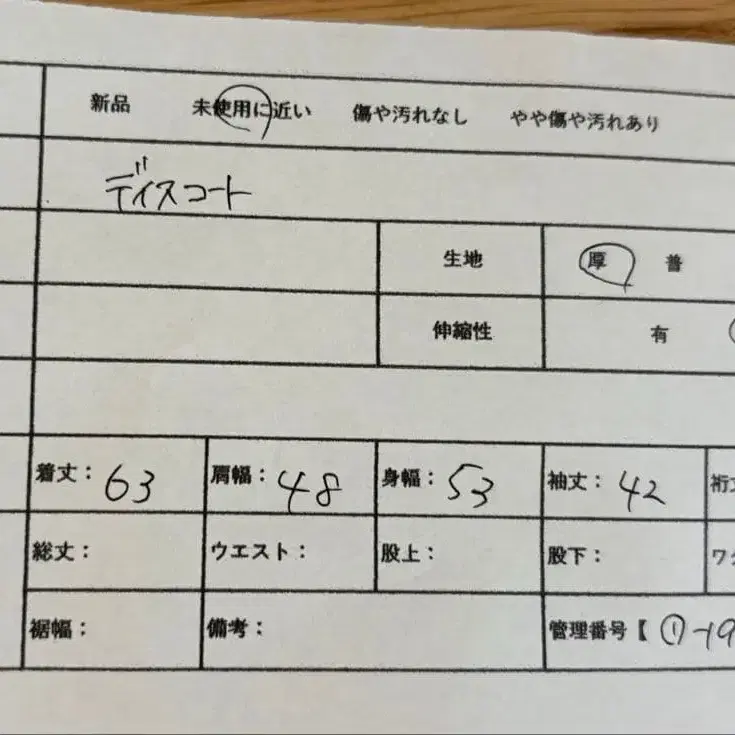 新品 未使用に近い 傷や汚れなし やや傷や汚れあり
ディスコート
生地 厚 普
伸縮性 有
着丈：63 肩幅：48 身幅：53 袖丈：42 裄
総丈： ウエスト： 股上： 股下： ワ
裾幅： 備考： 管理番号【 ①-19